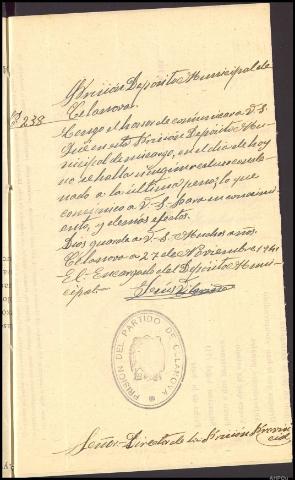 Prisión Depósito Municipal de
Celanova.
238
Tengo el honor de comunicar a V. S.
que en esta Prisión Depósito Mu-
nicipal de mi cargo, en el dia de hoy
no se halla ningun recluso conde-
nado a la ultima pena; lo que
comunico a V. S. para su conocimi-
ento, y demás efectos.
Dios guarde a V. S. Muchos años.
Celanova 27 de Noviembre 1941
El Encargado del Depósito Muni-
cipal.
PRISION DEL PARTIDO DE CELANOVA
Señor Director de la Prisión Provin-
cial